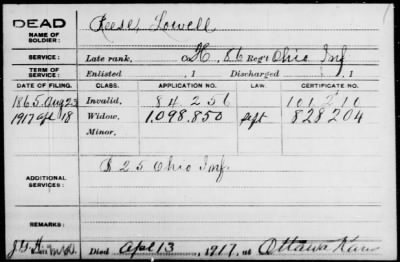 DEAD
NAME OF SOLDIER: Reese, Lowell
SERVICE: Late rank, Co. H, 86 Reg't Ohio Inf
TERM OF SERVICE: Enlisted , 1 Discharged , 1
DATE OF FILING. CLASS. APPLICATION NO. LAW. CERTIFICATE NO.
1865 Aug 23 Invalid, 84 256 101 210
1917 Apl 18 Widow, 1.098.850 Sept 828204
Minor,
ADDITIONAL SERVICES: B 25 Ohio Inf.
REMARKS:
Died Apl 13, 1917, at Ottawa Kans